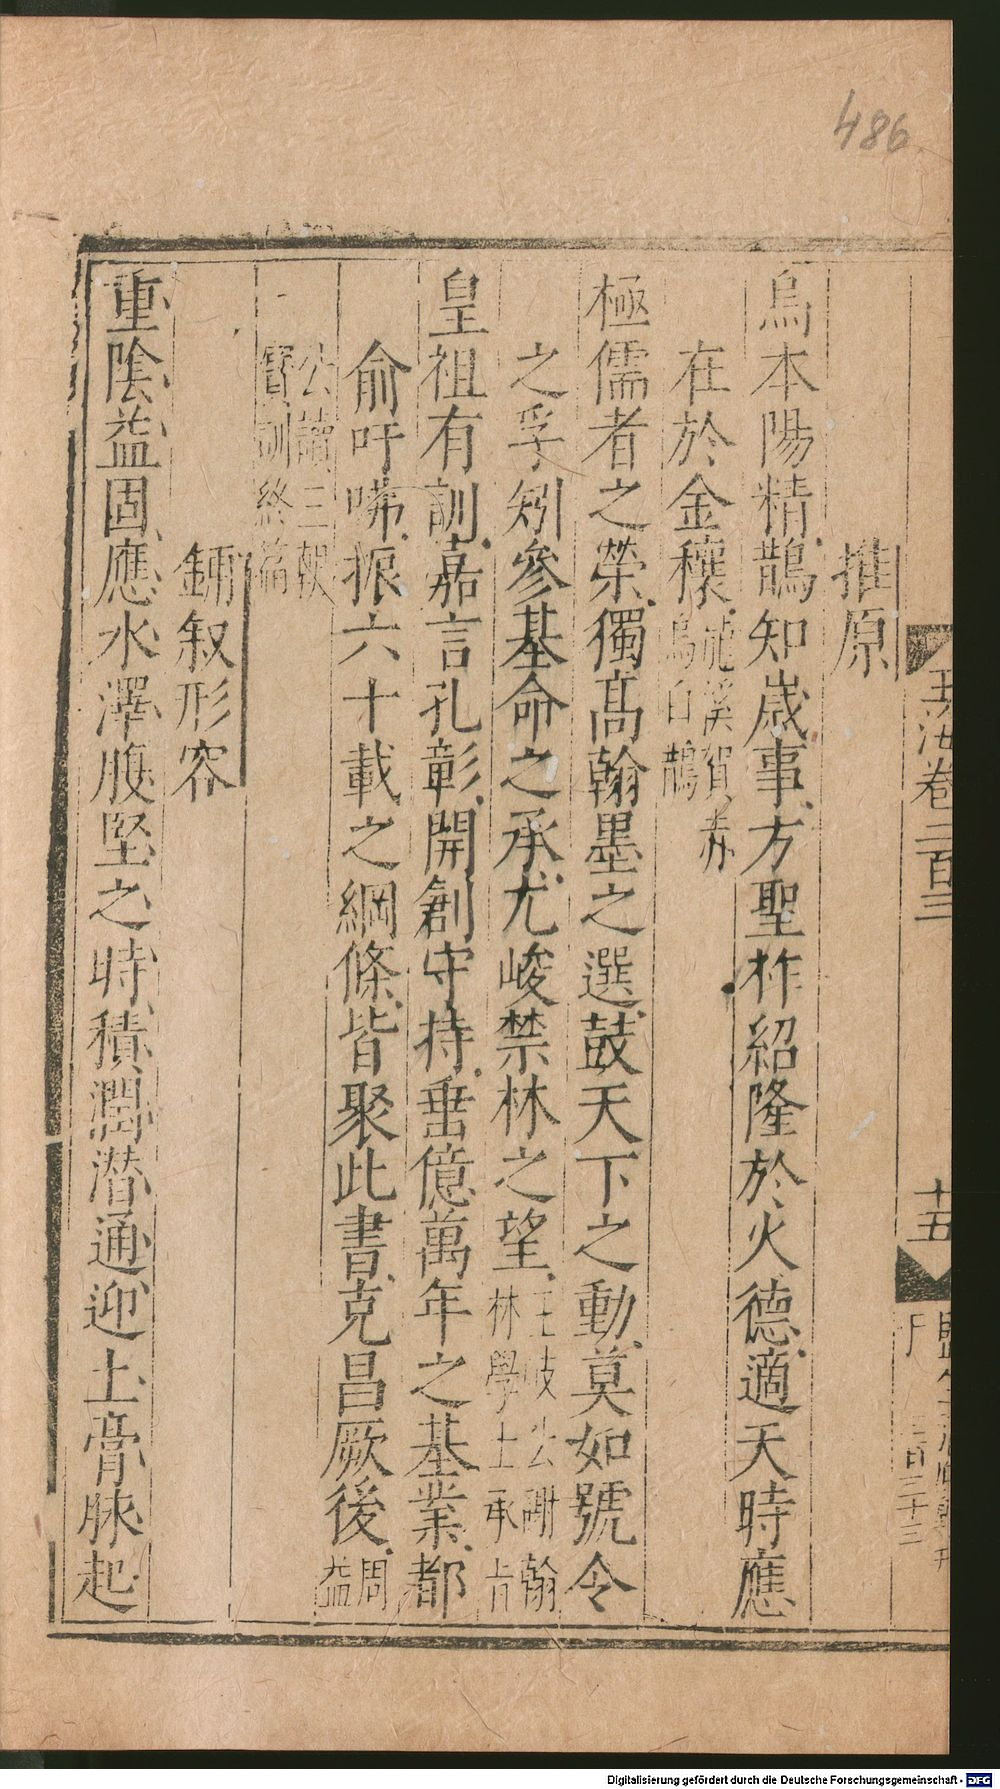 486
玉海卷二百三
十五
推原
烏本陽精鵲知歲事方聖柞紹隆於火德適天時應
在於金穰虎溪賀赤
烏白鵲
極儒者之榮獨髙翰墨之選鼓天下之動莫如號令
之孚矧參基命之承尤峻禁林之望王岐公謝翰
林學士承㫖
皇祖有訓嘉言孔彰開創守持垂億萬年之基業都
俞吁咈振六十載之綱條皆聚此書克昌厥後周益
公讀三朝
寳訓終篇
鋪叙形容
重陰益固應水澤腹堅之時積潤潜通迎土膏脉起
Digitalisierung gefördert durch die Deutsche Forschungsgemeinschaft - DFG